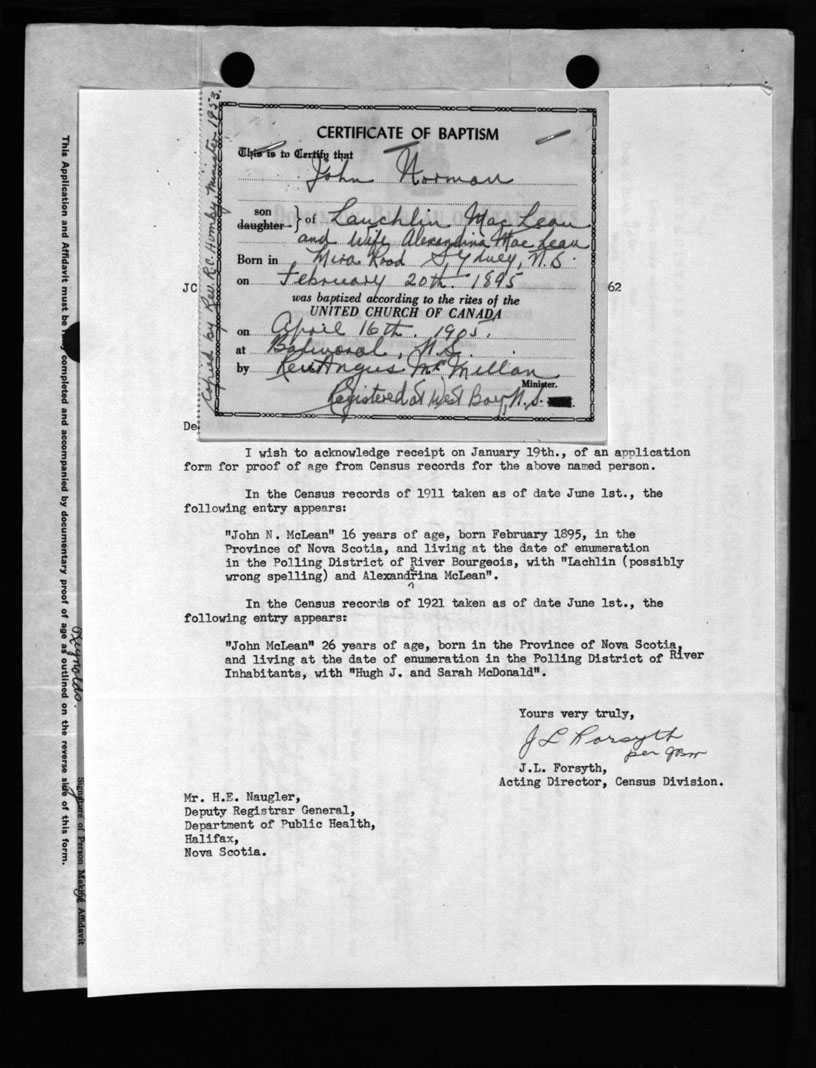 CERTIFICATE OF BAPTISM
This is to Certify that
John Norman
son
daughter } of Lauchlin MacLean
and Wife Alexandina MacLean
Born in Mira Road Sydney, N.S.
on February 20th. 1895
was baptized according to the rites of the
UNITED CHURCH OF CANADA
on April 16th. 1905.
at Balmoral, N.S.
by Rev Angus McMillan
Minister.
Registered at West Bay, N.S.
Copied by Rev. R.C. Hornby Minister 1953.
JC
62
De
I wish to acknowledge receipt on January 19th., of an application
form for proof of age from Census records for the above named person.
In the Census records of 1911 taken as of date June 1st., the
following entry appears:
"John N. McLean" 16 years of age, born February 1895, in the
Province of Nova Scotia, and living at the date of enumeration
in the Polling District of River Bourgeois, with "Lachlin (possibly
wrong spelling) and Alexandrina McLean".
In the Census records of 1921 taken as of date June 1st., the
following entry appears:
"John McLean" 26 years of age, born in the Province of Nova Scotia,
and living at the date of enumeration in the Polling District of River
Inhabitants, with "Hugh J. and Sarah McDonald".
Yours very truly,
J L Forsyth
per
J.L. Forsyth,
Acting Director, Census Division.
Mr. H.E. Naugler,
Deputy Registrar General,
Department of Public Health,
Halifax,
Nova Scotia.
This Application and Affidavit must be completed and accompanied by documentary proof of age as outlined on the reverse side of this form.
Reynolds.
Signature of Person Making Affidavit